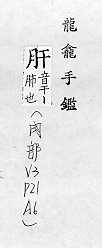 龍龕手鑑
肝音干|
肺也
(肉部
V3
P21
A6)